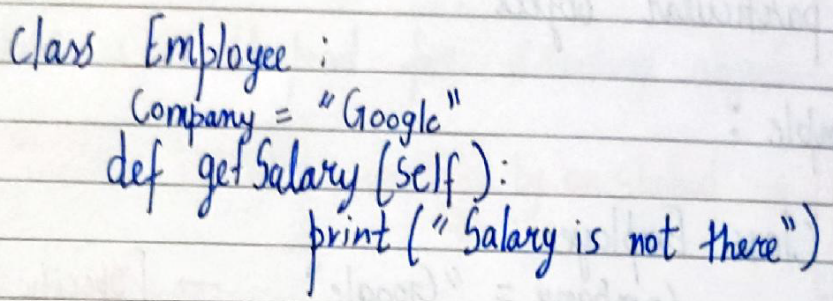 Class Employee :
Company = "Google"
def getSalary (self):
print (" Salary is not there")